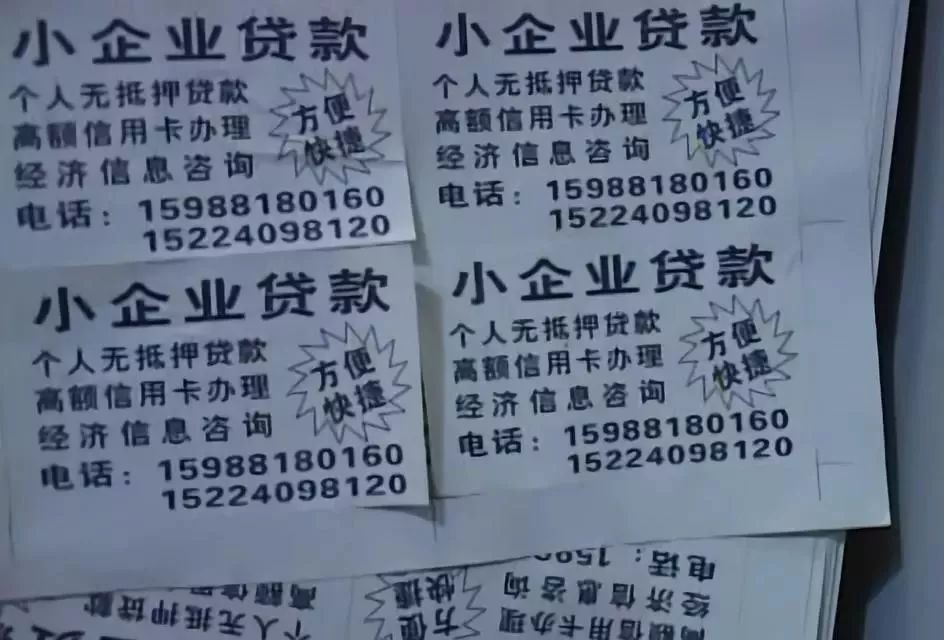 小企业贷款
个人无抵押贷款
高额信用卡办理
经济信息咨询
方便
快捷
电话：15988180160
15224098120
小企业贷款
个人无抵押贷款
高额信用卡办理
经济信息咨询
方便
快捷
电话：15988180160
15224098120
小企业贷款
个人无抵押贷款
高额信用卡办理
经济信息咨询
方便
快捷
电话：15988180160
15224098120
小企业贷款
个人无抵押贷款
高额信用卡办理
经济信息咨询
方便
快捷
电话：15988180160
15224098120
电话：
经济信息咨询
高额信用卡办理
方便
快捷
高额信
个人无抵押贷款